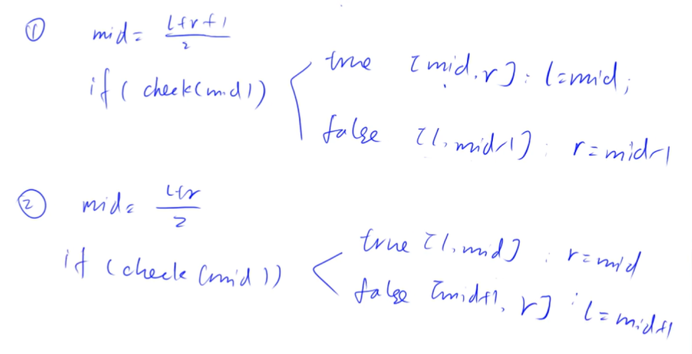 ① mid = (l+r+1)/2
if ( check(mid) ) true [mid, r] : l=mid;
false [l, mid-1] : r=mid-1
② mid = (l+r)/2
if ( check(mid) ) true [l, mid] : r=mid
false [mid+1, r] : l=mid+1